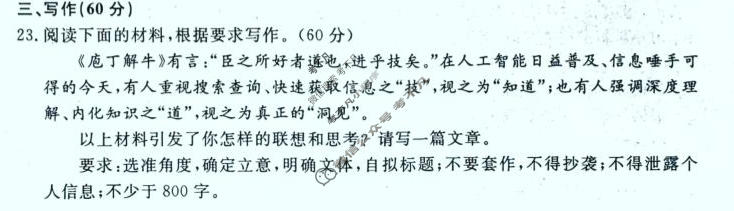 三、写作(60分)
23.阅读下面的材料,根据要求写作。(60分)
《庖丁解牛》有言:“臣之所好者道也,进乎技矣。”在人工智能日益普及、信息唾手可
得的今天,有人重视搜索查询、快速获取信息之“技”,视之为“知道”;也有人强调深度理
解、内化知识之“道”,视之为真正的“洞见”。
以上材料引发了你怎样的联想和思考?请写一篇文章。
要求:选准角度,确定立意,明确文体,自拟标题;不要套作,不得抄袭;不得泄露个
人信息;不少于800字。